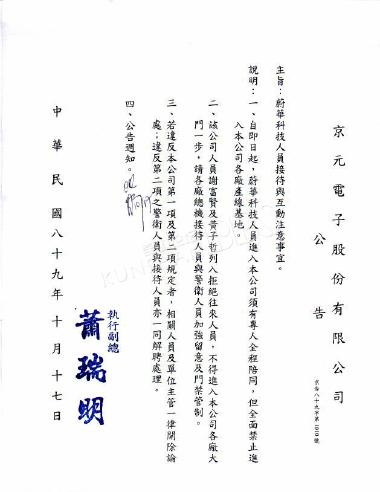 京元電子股份有限公司
公告
京告八十九字第1010號
主旨：蔚華科技人員接待與互動注意事宜。
說明：一、自即日起，蔚華科技人員進入本公司須有專人全程陪同，但全面禁止進
入本公司各廠產線基地
二、該公司人員謝富賢及黃子哲列入拒絕往來人員，不得進入本公司各廠大
門一步，請各廠總機接待人員與警衛人員加強留意及門禁管制。
三、若違反本公司第一項及第二項規定者，相關人員及單位主管一律開除論
處；違反第二項之警衛人員與接待人員亦一同解聘處理。
四、公告週知。
執行副總
蕭瑞明
中華民國八十九年十月十七日